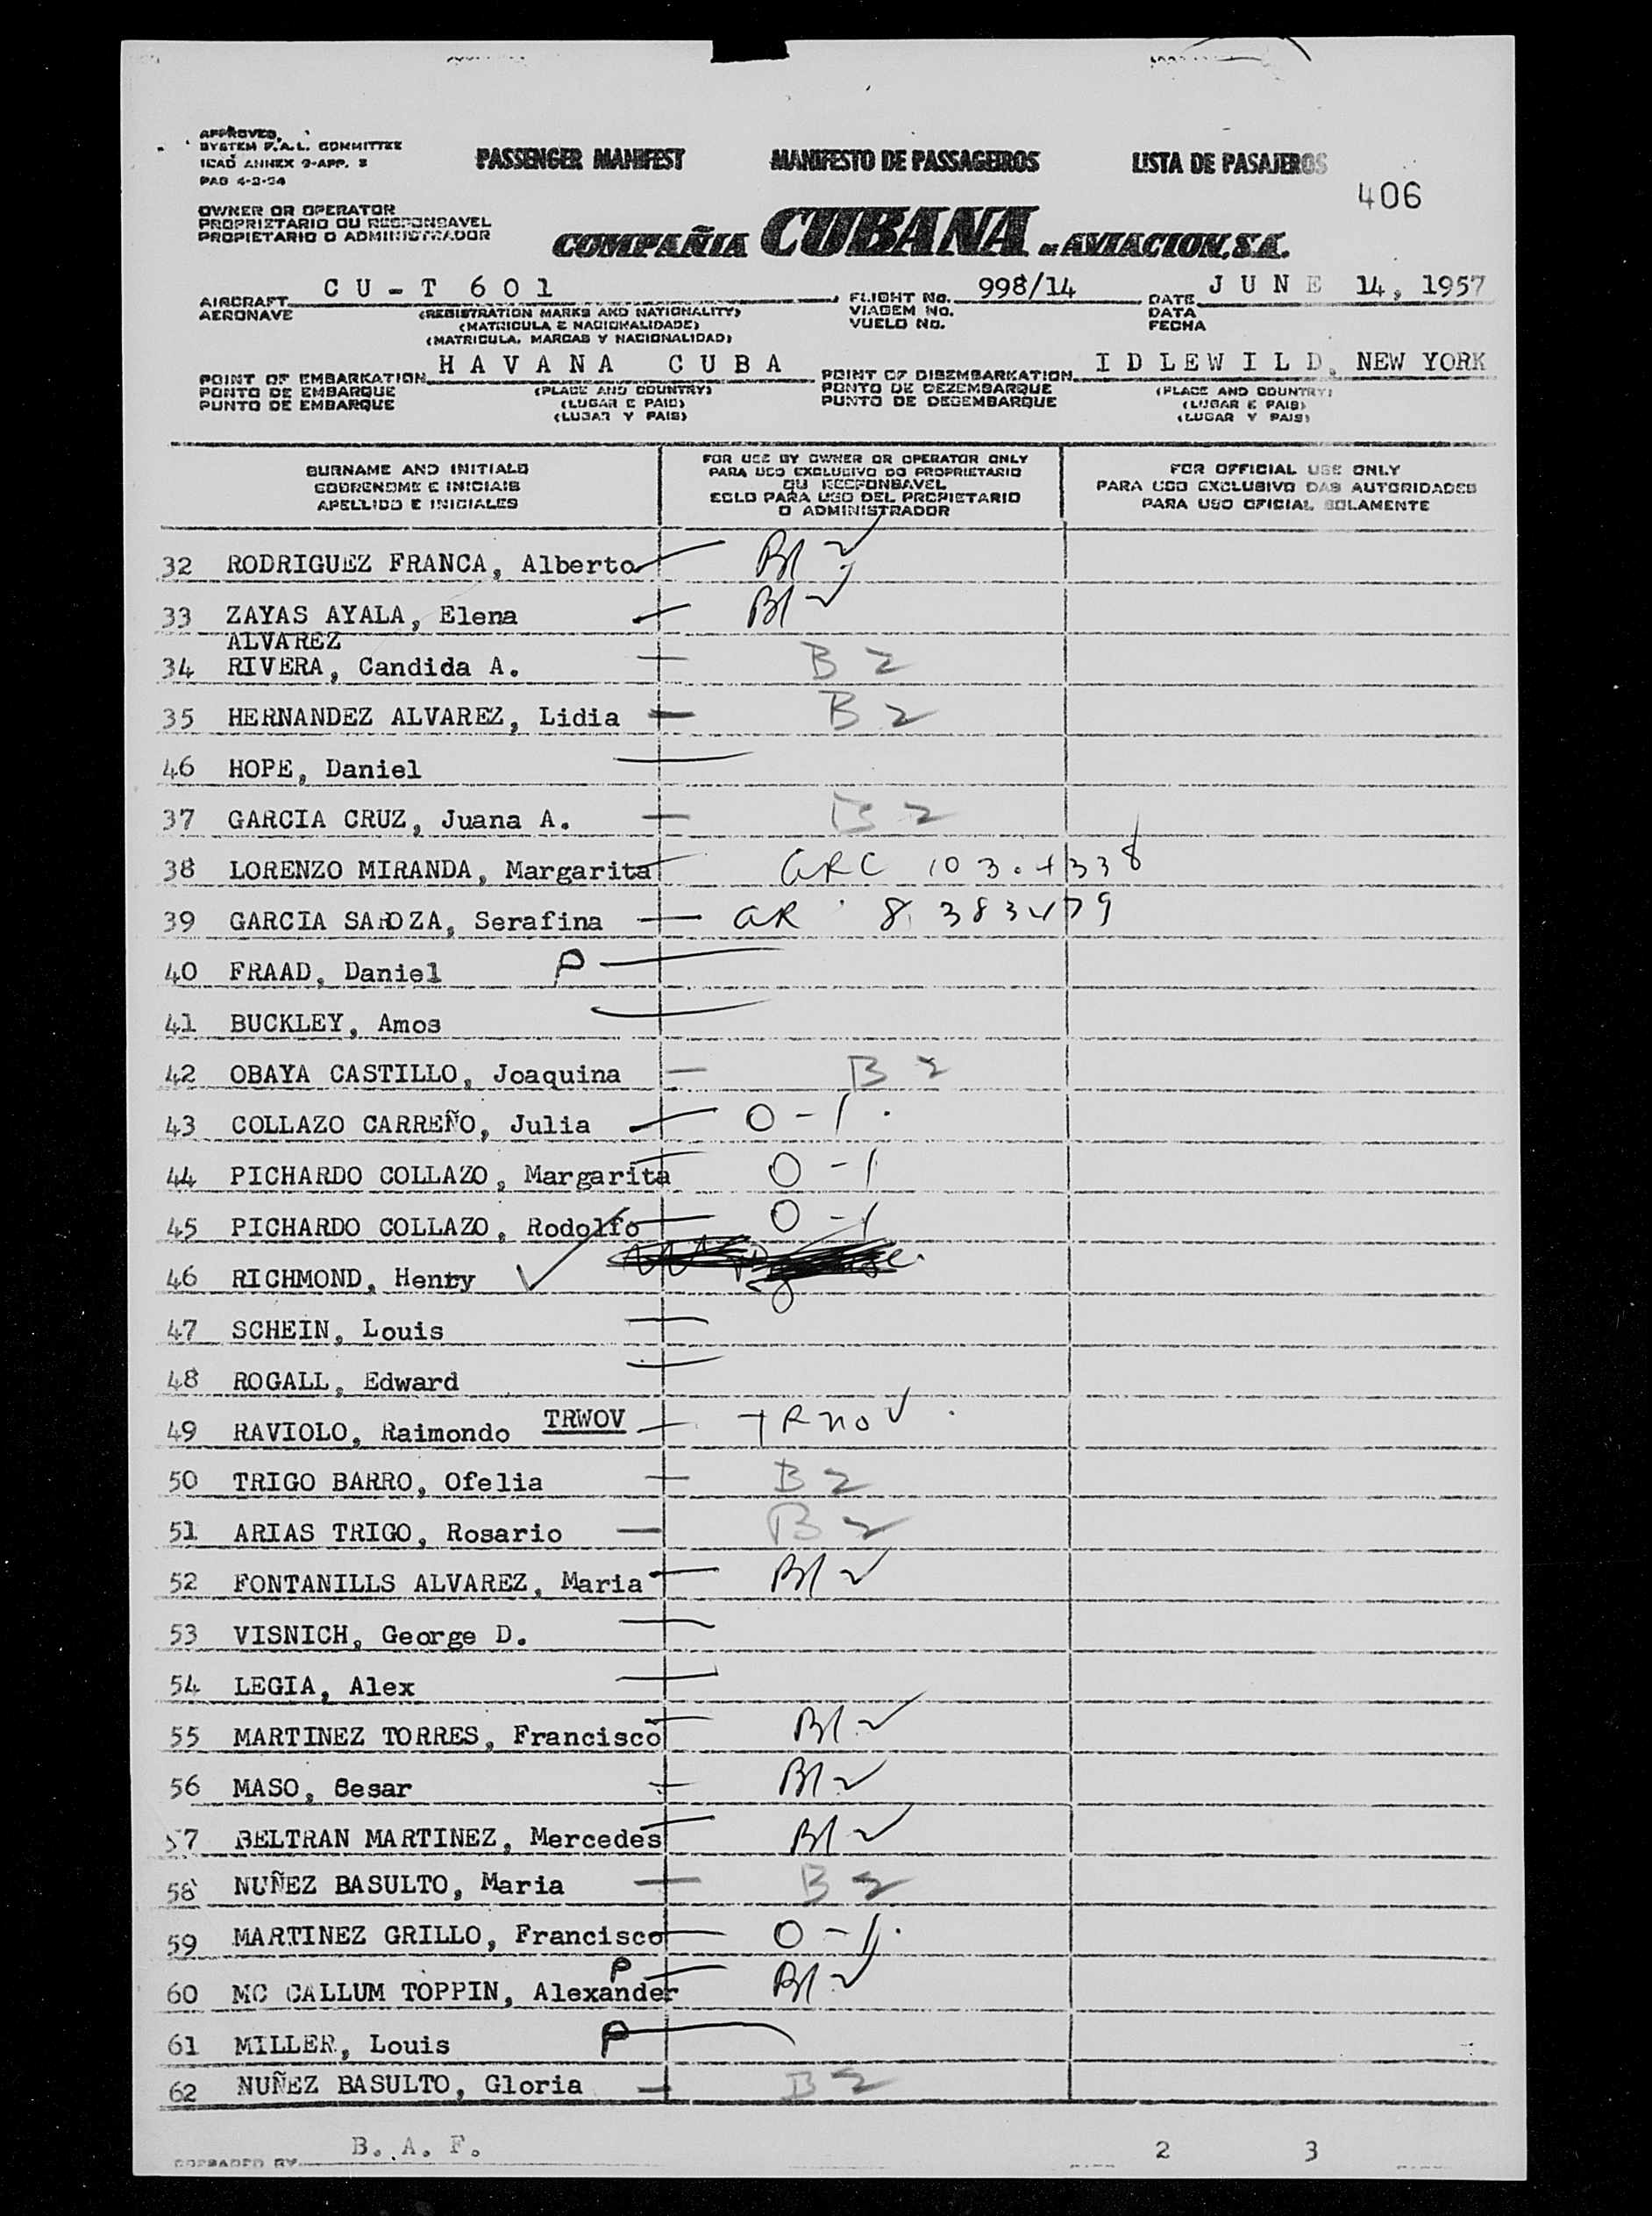 APPROVED
SYSTEM F.A.L. COMMITTEE
ICAO ANNEX 9-APP. 3
PAG 4-2-54
PASSENGER MANIFEST MANIFESTO DE PASSAGEIROS LISTA DE PASAJEROS
406
OWNER OR OPERATOR
PROPRIETARIO OU RESPONSAVEL
PROPIETARIO O ADMINISTRADOR
COMPAÑIA CUBANA DE AVIACION, S.A.
AIRCRAFT CU-T 601 FLIGHT No. 998/14 DATE JUNE 14, 1957
AERONAVE (REGISTRATION MARKS AND NATIONALITY) VIAGEM No. DATA
(MATRICULA E NACIONALIDADE) VUELO No. FECHA
(MATRICULA, MARCAS Y NACIONALIDAD)
POINT OF EMBARKATION HAVANA CUBA POINT OF DISEMBARKATION IDLEWILD, NEW YORK
PONTO DE EMBARQUE (PLACE AND COUNTRY) PONTO DE DEZEMBARQUE (PLACE AND COUNTRY)
PUNTO DE EMBARQUE (LUGAR E PAIS) PUNTO DE DESEMBARQUE (LUGAR E PAIS)
(LUGAR Y PAIS) (LUGAR Y PAIS)
SURNAME AND INITIALS
SOBRENOME E INICIAIS
APELLIDO E INICIALES
FOR USE BY OWNER OR OPERATOR ONLY
PARA USO EXCLUSIVO DO PROPRIETARIO
OU RESPONSAVEL
SOLO PARA USO DEL PROPIETARIO
O ADMINISTRADOR
FOR OFFICIAL USE ONLY
PARA USO EXCLUSIVO DAS AUTORIDADES
PARA USO OFICIAL SOLAMENTE
32 RODRIGUEZ FRANCA, Alberto B1 ✓
33 ZAYAS AYALA, Elena B1 ✓
ALVAREZ
34 RIVERA, Candida A. B 2
35 HERNANDEZ ALVAREZ, Lidia B 2
46 HOPE, Daniel
37 GARCIA CRUZ, Juana A. B 2
38 LORENZO MIRANDA, Margarita ARC
39 GARCIA SAROZA, Serafina AR
40 FRAAD, Daniel P
41 BUCKLEY, Amos
42 OBAYA CASTILLO, Joaquina B 2
43 COLLAZO CARREÑO, Julia O-1
44 PICHARDO COLLAZO, Margarita O-1
45 PICHARDO COLLAZO, Rodolfo O-1
46 RICHMOND, Henry ✓
47 SCHEIN, Louis
48 ROGALL, Edward
49 RAVIOLO, Raimondo TRWOV TRWOV
50 TRIGO BARRO, Ofelia B 2
51 ARIAS TRIGO, Rosario B 2
52 FONTANILLS ALVAREZ, Maria B1 ✓
53 VISNICH, George D.
54 LEGIA, Alex
55 MARTINEZ TORRES, Francisco B1 ✓
56 MASO, Cesar B1 ✓
57 BELTRAN MARTINEZ, Mercedes B1 ✓
58 NUÑEZ BASULTO, Maria B 2
59 MARTINEZ GRILLO, Francisco O-1
60 MC CALLUM TOPPIN, Alexander P B1 ✓
61 MILLER, Louis P
62 NUÑEZ BASULTO, Gloria B 2
B. A. F. 2 3